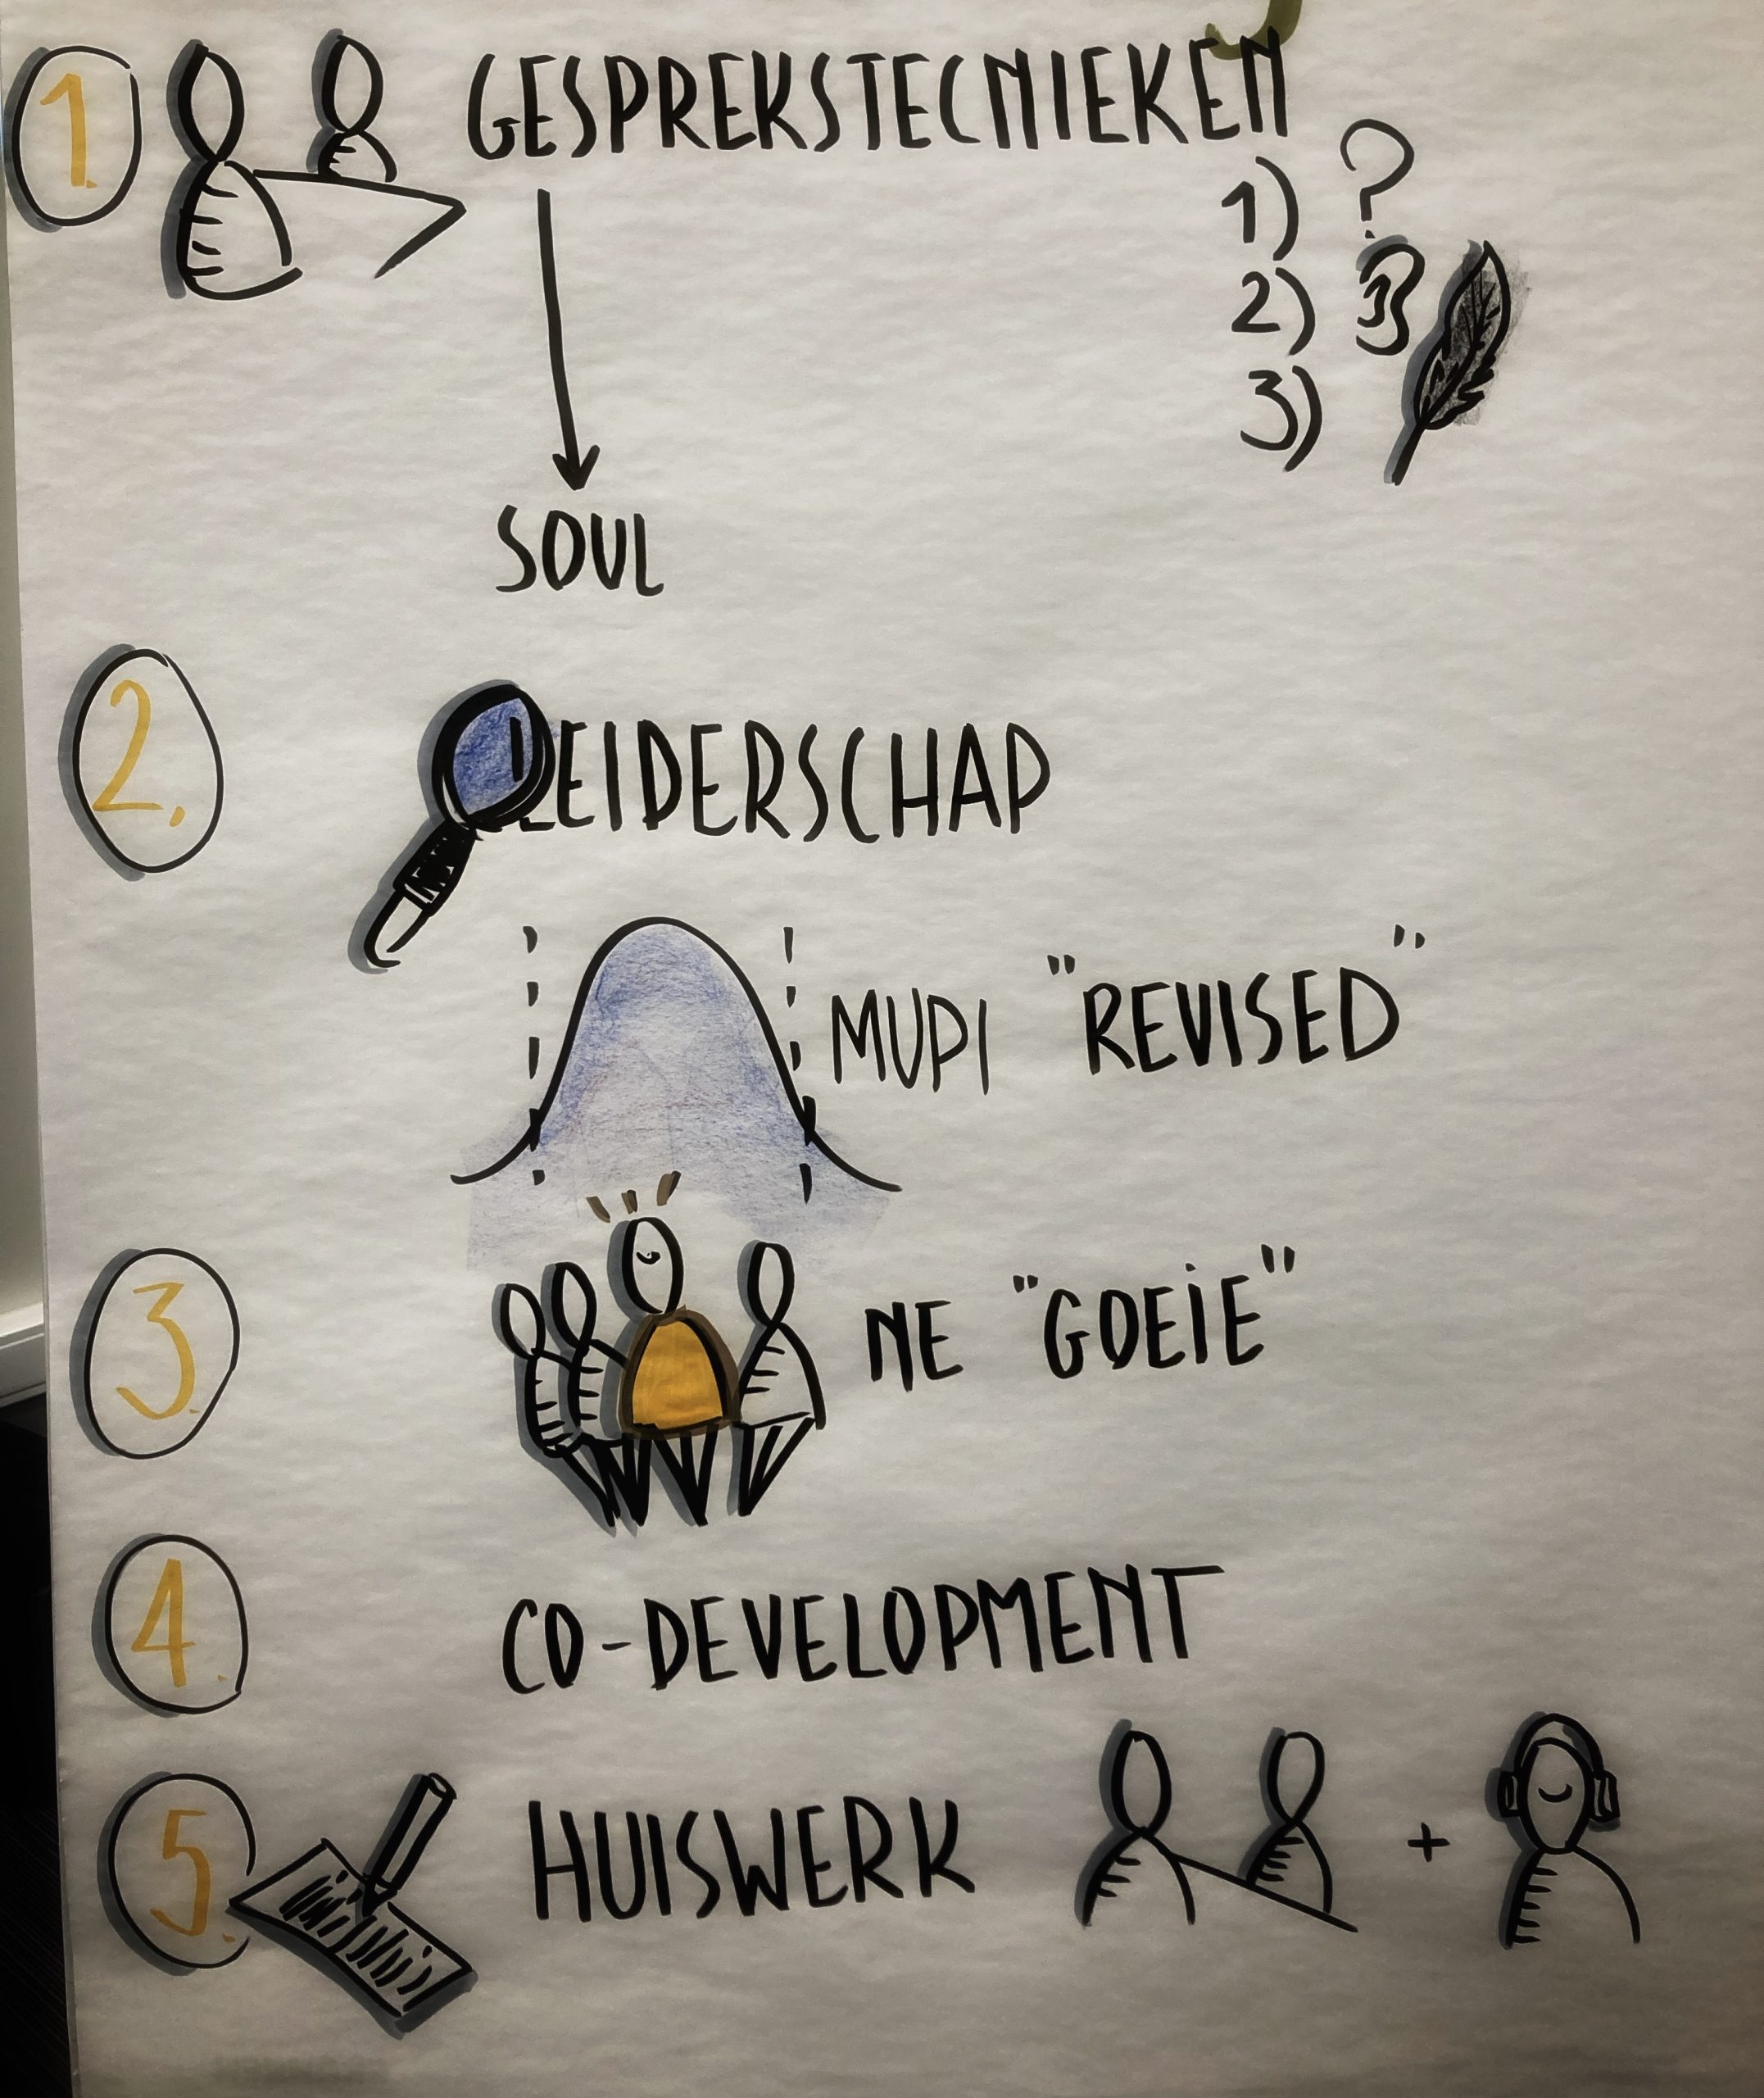 1. GESPREKSTECNIEKEN
1) ?
2)
3)
SOUL
2. LEIDERSCHAP
MUPI "REVISED"
3. NE "GOEiE"
4. CO-DEVELOPMENT
5. HUISWERK +